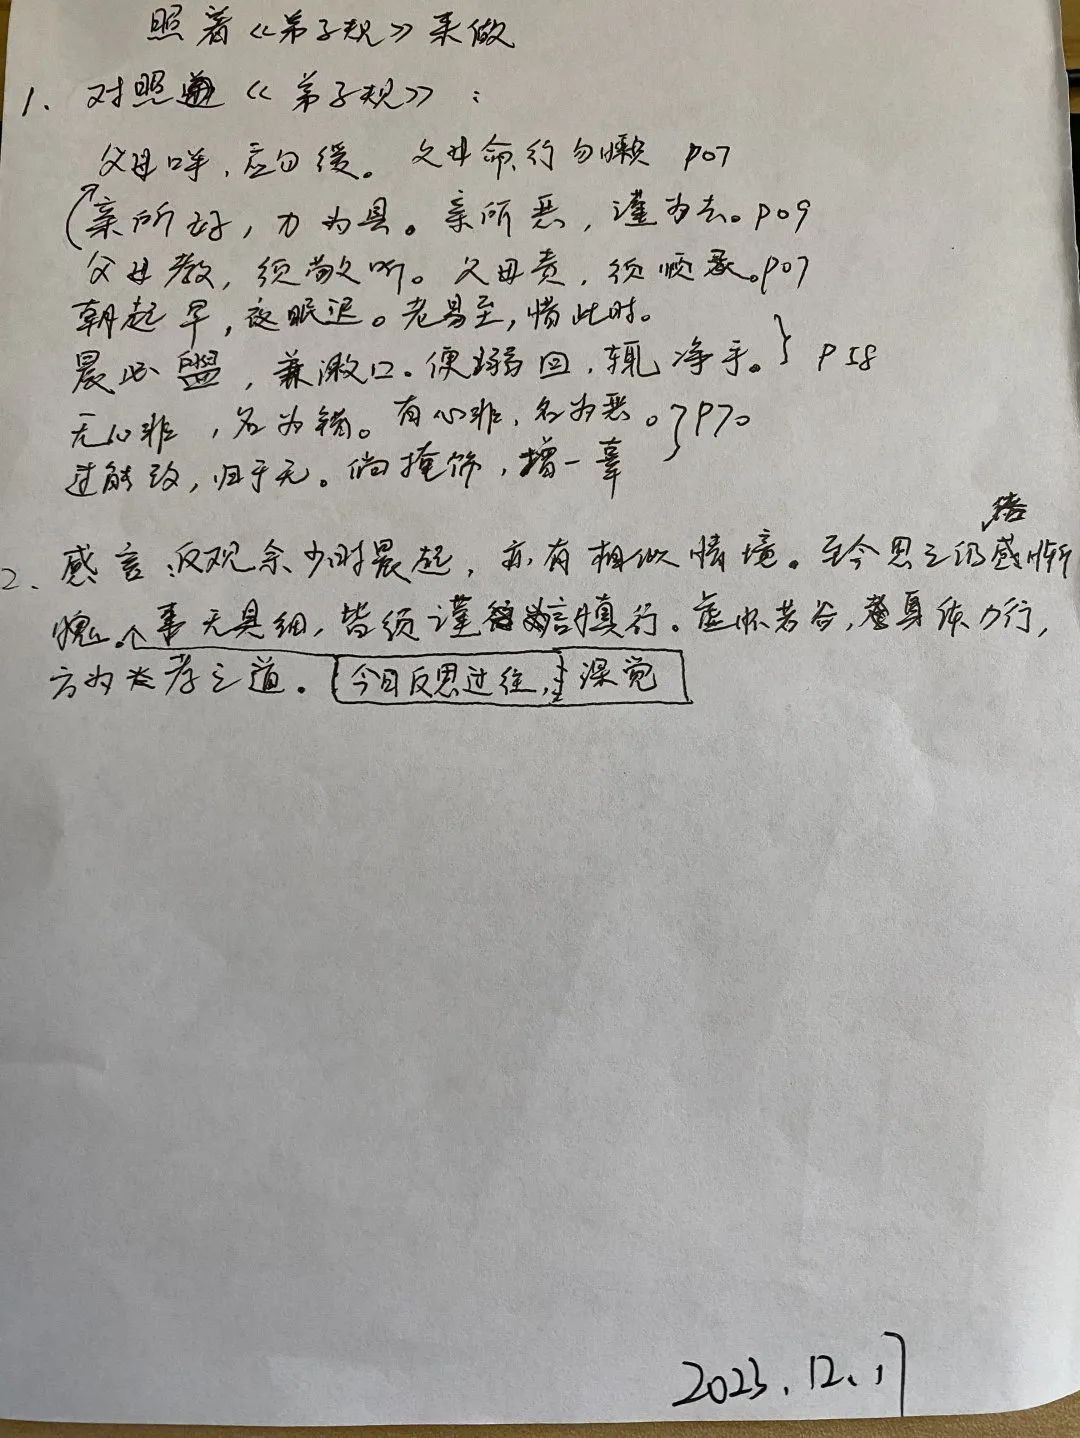 照着《弟子规》来做
1. 对照《弟子规》：
父母呼，应勿缓。父母命，行勿懒 P07
亲所好，力为具。亲所恶，谨为去。P09
父母教，须敬听。父母责，须顺承。P07
朝起早，夜眠迟。老易至，惜此时。
晨必盥，兼漱口。便溺回，辄净手。} P58
无心非，名为错。有心非，名为恶。} P70
过能改，归于无。倘掩饰，增一辜
2. 感言：反观余少时晨起，亦有相似情境。至今思之仍感惭
愧。事无具细，皆须谨言慎行。虚怀若谷，身体力行，
方为孝之道。今日反思过往，深觉
2023.12.17